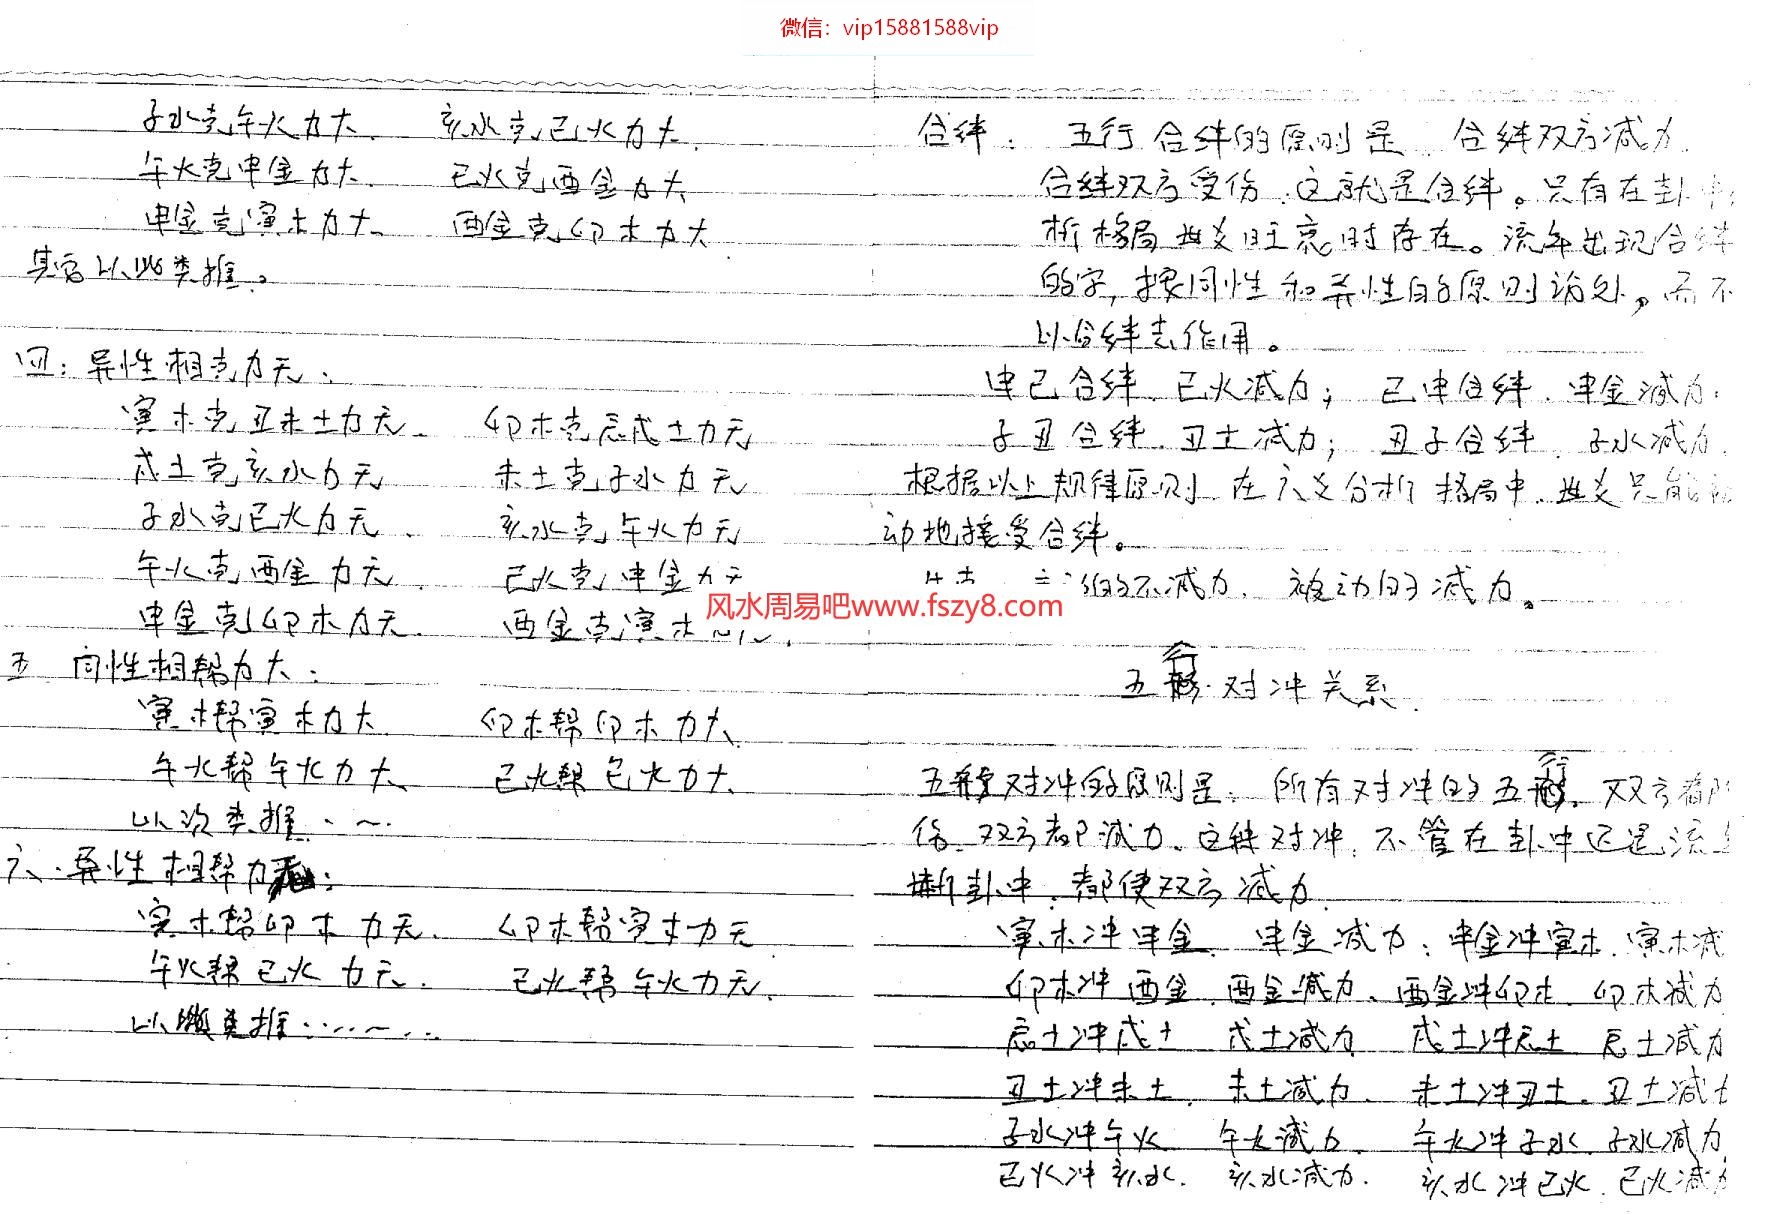 微信：vip15881588vip
子水克午火力大. 亥水克巳火力大.
午火克申金力大. 巳火克酉金力大
申金克寅木力大. 酉金克卯木力大
其它以此类推。
四：异性相克力无：
寅木克丑未土力无. 卯木克辰戌土力无
戌土克亥水力无 未土克子水力无
子水克巳火力无. 亥水克午火力无
午火克酉金力无. 巳火克申金力无
申金克卯木力无. 酉金克寅木～～.
五 同性相帮力大：
寅木帮寅木力大 卯木帮卯木力大
午火帮午火力大 巳火帮巳火力大.
以次类推·～.
六、异性相帮力无：
寅木帮卯木力无. 卯木帮寅木力无
午火帮巳火力无. 巳火帮午火力无.
以此类推
合绊：五行合绊的原则是 合绊双方减力.
合绊双方受伤.这就是合绊。只有在卦中
析格局世爻旺衰时存在。流年出现合绊
的字，按同性和异性的原则论处，而不
以合绊去作用。
申巳合绊.巳火减力；巳申合绊.申金减力.
子丑合绊.丑土减力；丑子合绊.子水减力.
根据以上规律原则 在六爻分析格局中.世爻只能
动地接受合绊。
的不减力.被动的减力。
风水周易吧www.fszy8.com
五行对冲关系.
五行对冲的原则是：所有对冲的五行.双方都
伤.双方都减力.这种对冲.不管在卦中还是流
断卦中.都使双方减力.
寅木冲申金.申金减力；申金冲寅木.寅木减
卯木冲酉金.酉金减力、酉金冲卯木.卯木减力
辰土冲戌土 戌土减力 戌土冲辰土 辰土减力
丑土冲未土.未土减力.未土冲丑土.丑土减
子水冲午火 午火减力.午火冲子水.子水减力
巳火冲亥水.亥水减力.亥水冲巳火.巳火减力